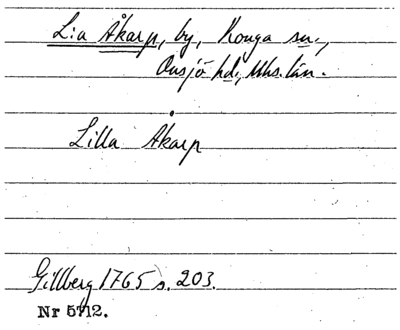 L:a Åkarp, by, Konga sn.,
Onsjö hd., Mhs. län.
Lilla Åkarp
Gillberg 1765 s. 203.
Nr 5712.